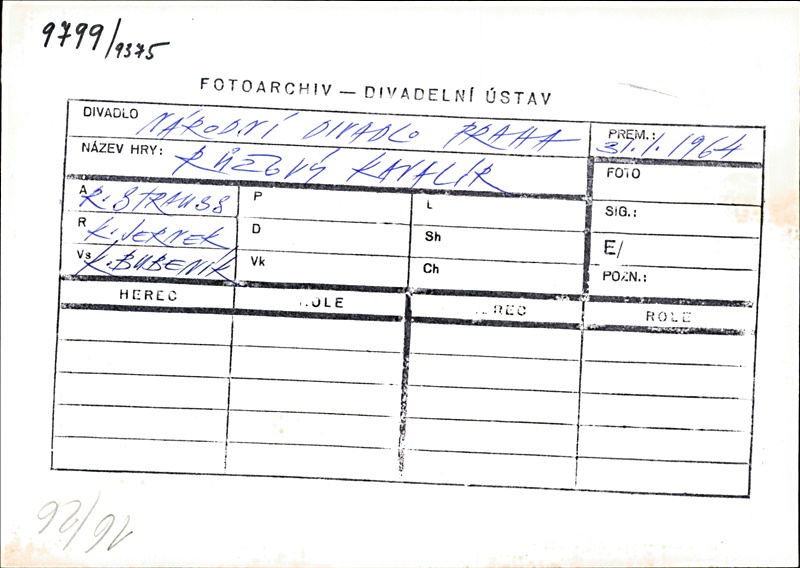 9799/9375
FOTOARCHIV — DIVADELNÍ ÚSTAV
DIVADLO NÁRODNÍ DIVADLO PRAHA
PREM.: 31.1.1964
NÁZEV HRY: RŮŽOVÝ KAVALÍR
FOTO
A R. STRAUSS
P
L
SIG.:
R K. JERNEK
D
Sh
E/
Vs K. BUBENÍK
Vk
Ch
POZN.:
HEREC
ROLE